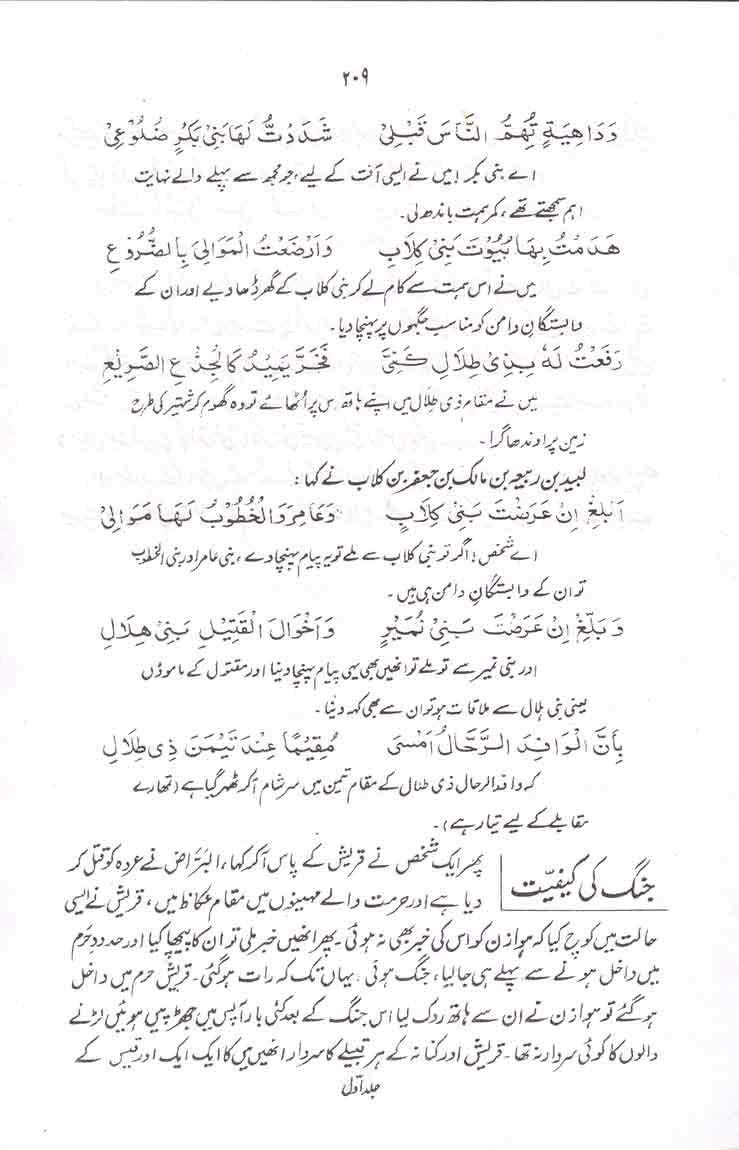 ۲۰۹
وَدَاهِيَةٍ تُهِمُّ النَّاسَ قَبْلِيْ شَدَدْتُّ لَهَا بَنِيْ بَكْرٍ ضُلُوْعِيْ
اے بنی بکر! میں نے ایسی آفت کے لیے، جو مجھ سے پہلے والے نہایت
اہم سمجھتے تھے، کمر ہمت باندھ لی۔
هَدَمْتُ بِهَا بُيُوْتَ بَنِيْ كِلَابٍ وَاَرْضَعْتُ الْمَوَالِيَ بِالضُّرُوْعِ
میں نے اس ہمت سے کام لے کر بنی کلاب کے گھر ڈھا دیے اور ان کے
وابستگانِ دامن کو مناسب جگہوں پر پہنچا دیا۔
رَفَعْتُ لَهُ بِذِيْ طِلَالِ كَفِّيْ فَخَرَّ يَمِيْدُ كَالْجِذْعِ الصَّرِيْعِ
میں نے مقام ذی طلال میں اپنے ہاتھ اس پر اٹھائے تو وہ گھوم کر شہتیر کی طرح
زمین پر اوندھا گرا۔
لبید بن ربیعہ بن مالک بن جعفر بن کلاب نے کہا:
اَبْلِغْ اِنْ عَرَضْتَ بَنِيْ كِلَابٍ وَعَامِرَ وَالْخُطُوْبُ لَهَا مَوَالِيْ
اے شخص! اگر تو بنی کلاب سے ملے تو یہ پیام پہنچا دے، بنی عامر اور بنی الخطوب
تو ان کے وابستگانِ دامن ہی ہیں۔
وَبَلِّغْ اِنْ عَرَضْتَ بَنِيْ نُمَيْرٍ وَاَخْوَالَ الْقَتِيْلِ بَنِيْ هِلَالِ
اور بنی نمیر سے تو ملے تو انھیں بھی یہی پیام پہنچا دینا اور مقتول کے ماموؤں
یعنی بنی ہلال سے ملاقات ہو تو ان سے بھی کہہ دینا۔
بِاَنَّ الْوَافِدَ الرَّحَّالَ اَمْسٰی مُقِيْمًا عِنْدَ تَيْمَنَ ذِيْ طِلَالِ
کہ وافد الرحال ذی طلال کے مقام تیمن میں سرِ شام آکر ٹھہر گیا ہے (تمھارے
مقابلے کے لیے تیار ہے)۔
جنگ کی کیفیّت
پھر ایک شخص نے قریش کے پاس آکر کہا، البرّاض نے عروہ کو قتل کر
دیا ہے اور حرمت والے مہینوں میں مقام عکاظ میں، قریش نے ایسی
حالت میں کوچ کیا کہ ہوازن کو اس کی خبر بھی نہ ہوئی۔ پھر انھیں خبر ملی تو ان کا پیچھا کیا اور حدود حرم
میں داخل ہونے سے پہلے ہی جا لیا، جنگ ہوئی، یہاں تک کہ رات ہو گئی۔ قریش حرم میں داخل
ہو گئے تو ہوازن نے ان سے ہاتھ روک لیا اس جنگ کے بعد کئی بار آپس میں جھڑپیں ہوئیں لڑنے
والوں کا کوئی سردار نہ تھا۔ قریش اور کنانہ کے ہر قبیلے کا سردار انھیں میں کا ایک ایک اور قیس کے
جلد اوّل